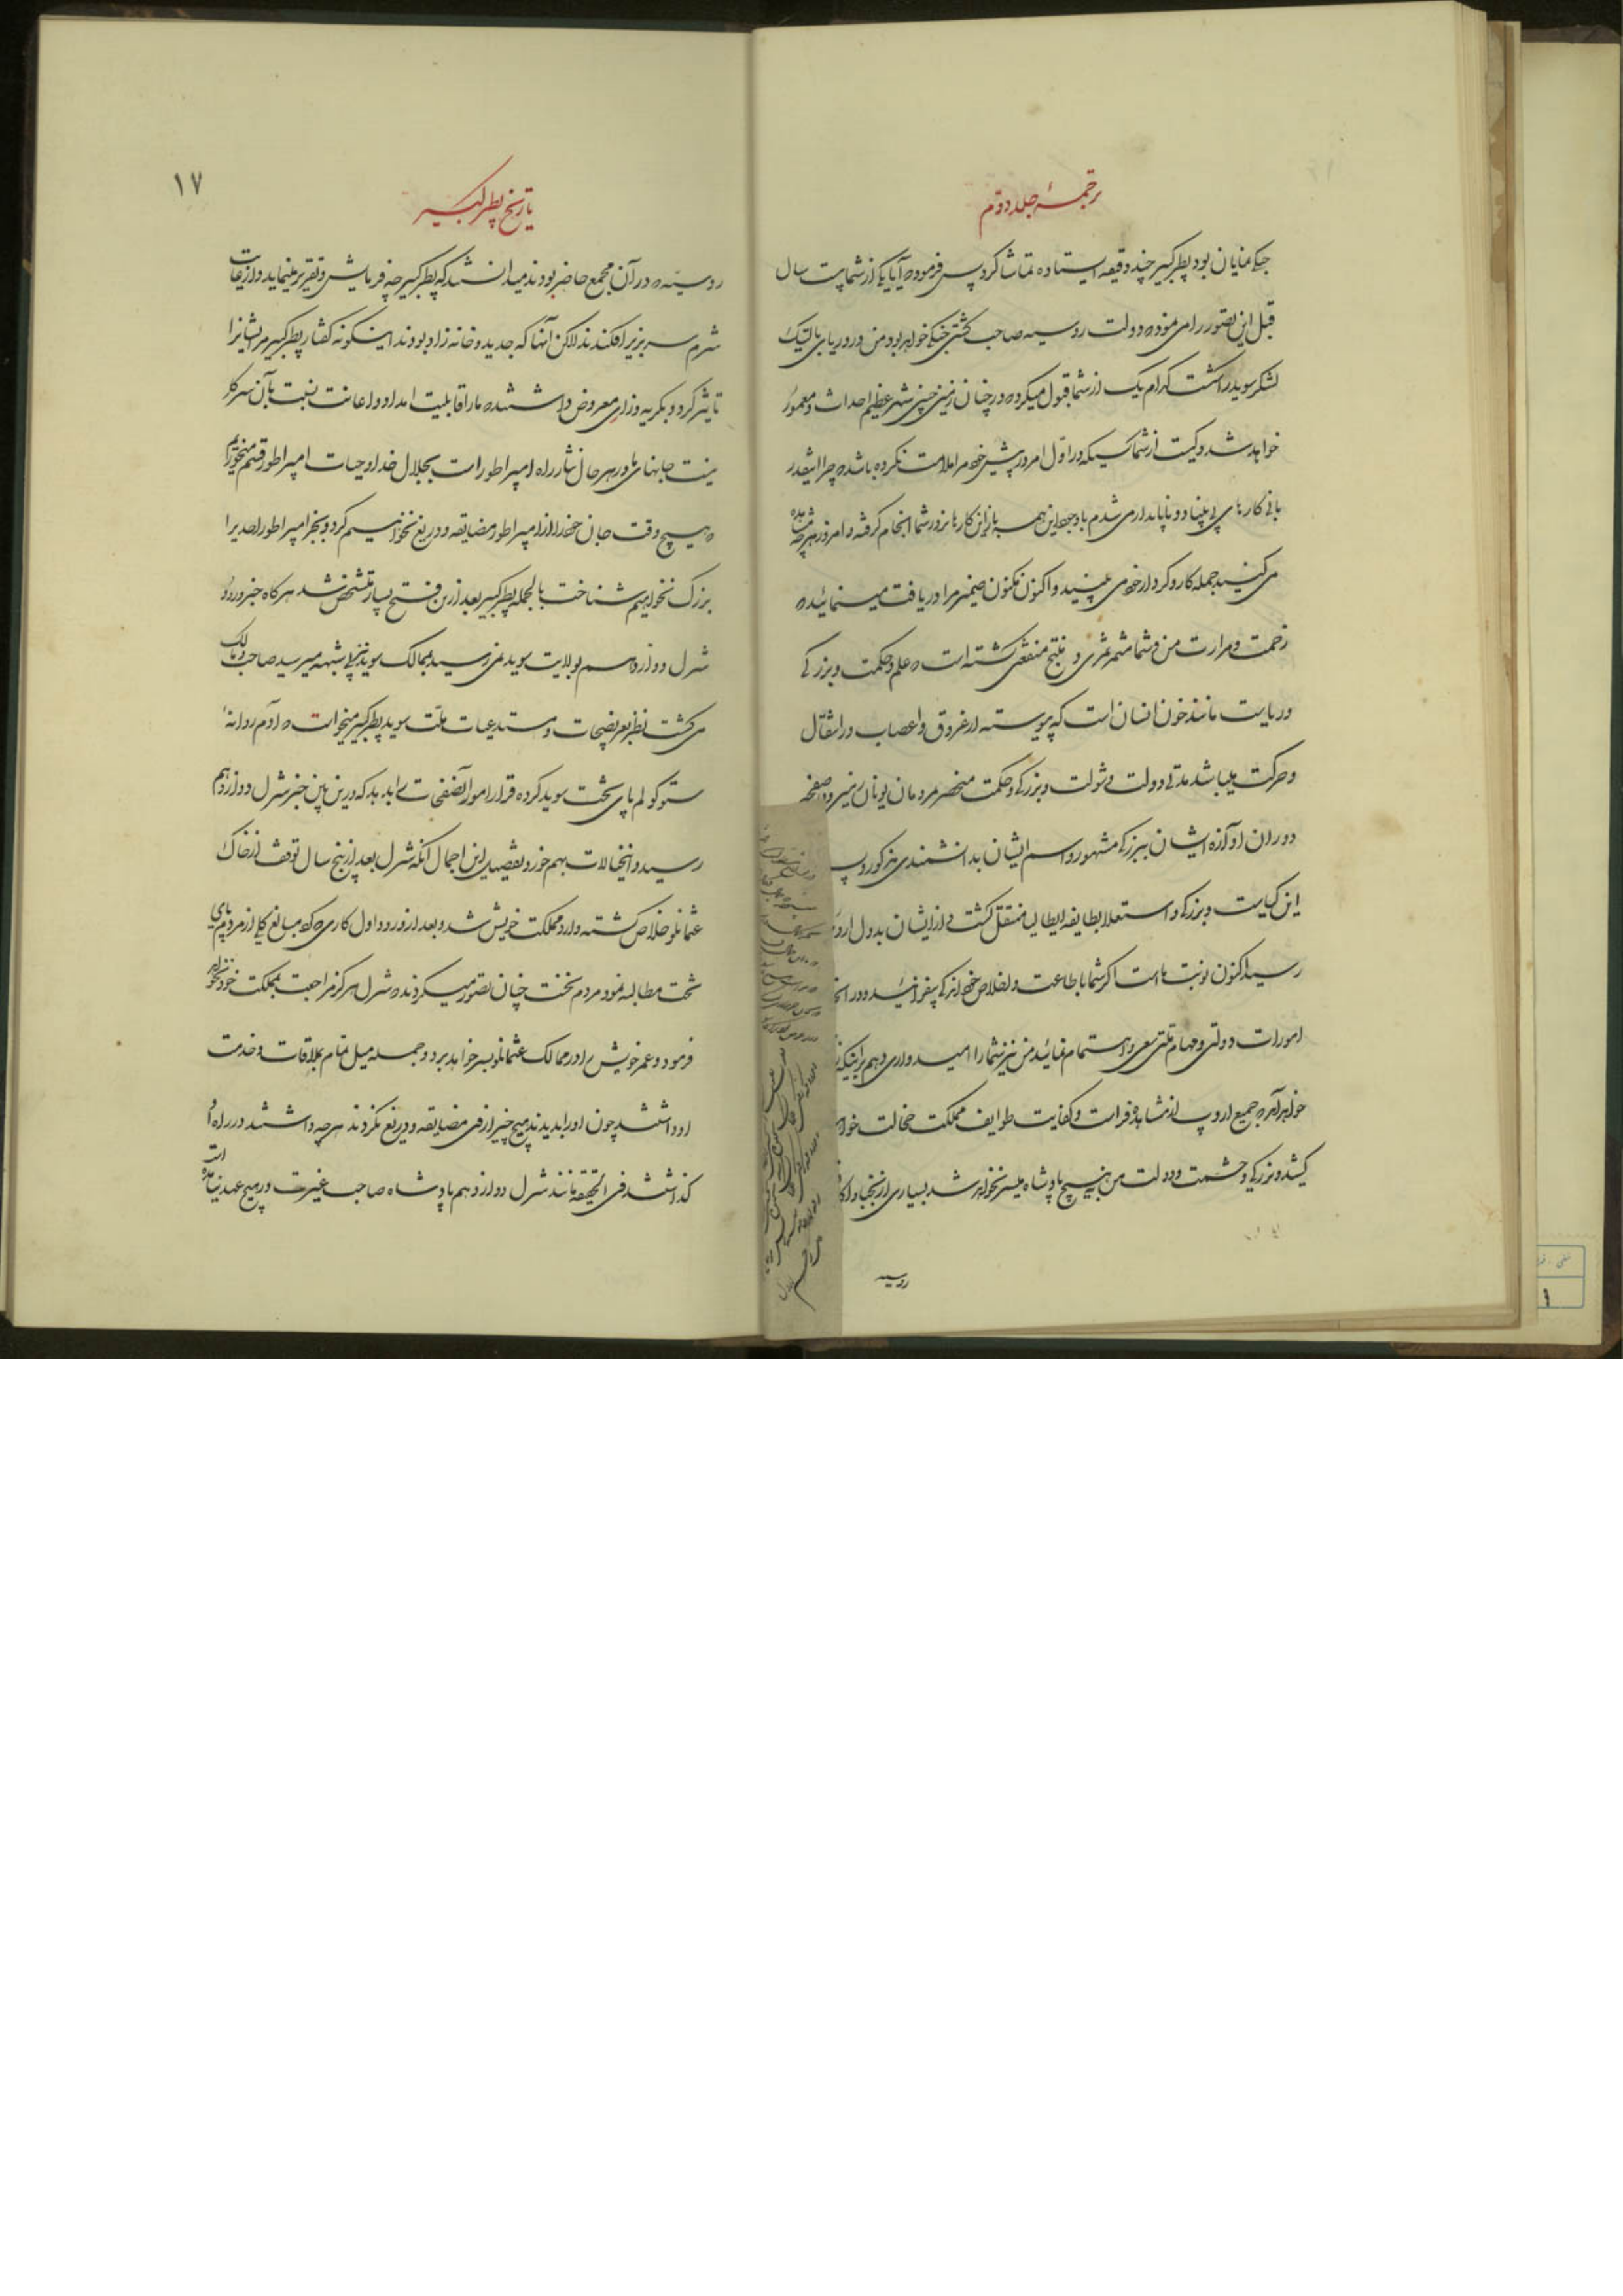 ترجمهٔ جلد دوّم
جنکی نمایان بود پطر کبیر چند دقیقه ایستاده تماشا کرد پس فرمود که آیا یکی از شما بیست سال
قبل این تصور را می نمود که دولت روسیه صاحب کشتی جنکی خواهد بود من در دریای بالتیک
لشکر سوید را شکست کدام یک از شما قبول میکرد که در چنان زمینی چنین شهر عظیم احداث و معمور
خواهد شد و کیست از شما کسیکه در اوّل امر در پیش خود مرا ملامت نکرده باشد که چرا اینقدر
بانی کارهای بی بنیاد و ناپایدار می شدم با وجود این همه باز این کارها بزور شما انجام گرفته و امروز هر چه مشاهده
می کنید جمله کار و کردار خود می بینید و اکنون مکنون ضمیر مرا دریافت مینمائید که
زحمت و مرارت من و شما مثمر ثمری و منتج منفعتی کشته است که علم و حکمت و بزرکی
و ریاست مانند خون انسان است که پیوسته از عروق و اعصاب در انتقال
و حرکت میباشد مدتی دولت و شوکت و بزرکی و حکمت منحصر مردمان یونان زمین بود صفحه
دوران او آوازه ایشان ببزرکی مشهور و اسم ایشان بدانشمندی مذکور و پس
این کیاست و بزرکی و استعلا بطایفه ایطالیا منتقل کشت و از ایشان بدول اروپ
رسید اکنون نوبت ما است اکر شما با طاعت و اخلاص خود اندکی بیفزائید و در انجام
امورات دولتی و مهام ملتی سعی و اهتمام نمائید من نیز شما را امیدواری دهم بر اینکه
خواهد آمد که جمیع اروپ از مشاهده فراست و کفایت طوایف مملکت خجالت خواهند
کشید و بزرکی و حشمت و دولت من بهیچ پادشاه میسر نخواهد شد بسیاری از نجبا و اکابر
روسیه
تاریخ پطر کبیر
۱۷
روسیّه که در آن مجمع حاضر بودند میدانستند که پطر کبیر چه فرمایش و تقریر مینماید و از غایت
شرم سر بزیر افکندند لاکن آنها که جدید و خانه زاد بودند اینکونه کفتار پطر کبیر مر ایشانرا
تاثیر کرد و بکریه و زاری معروض داشتند که ما را قابلیت امداد و اعانت نسبت بآن سرکار
نیست جانهای ما در هر حال نثار راه امپراطور است بجلال خدا و حیات امپراطور قسم میخوریم
که هیچ وقت جان خود را از امپراطور مضایقه و دریغ نخواهیم کرد و بجز امپراطور احدیرا
بزرک نخواهیم شناخت بالجمله پطر کبیر بعد ازین فتح بسیار متشخص شد هرکاه خبر ورود
شرل دوازدهم بولایت سوید نمی رسید بممالک سوید نیز بلا شبهه میرسید صاحب و مالک
می کشت نظر بعریضجات و مستدعیات ملّت سوید پطر کبیر میخواست که آدم روانهٔ
ستوکولم پای تخت سوید کرده قرار امور آنصفحات را بدهد که درین بین خبر شرل دوازدهم
رسید و اینخیالات بهم خورد و تفصیل این اجمال آنکه شرل بعد از پنج سال توقف از خاک
عثمانلو خلاص کشته وارد مملکت خویش شد و بعد از ورود اول کاری که کرد مبالغ کلی از مردم پای
تخت مطالبه نمود مردم تخت چنان تصور میکردند که شرل هرکز مراجعت بمملکت خود نخواهد
فرمود و عمر خویش را در ممالک عثمانلو بسر خواهد برد و جمله میل تمام بملاقات و خدمت
او داشتند چون او را بدیدند هیچ چیز از وی مضایقه و دریغ نکردند هر چه داشتند در راه او
کذاشتند فی الحقیقه مانند شرل دوازدهم پادشاه صاحب غیرت در هیچ عهد نیامده است